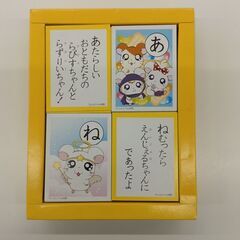 あたらしい
おともだちの
らぴすちゃんと
らずりいちゃん!
あ
ね
ねむったら
えんじぇるちゃんに
であったよ